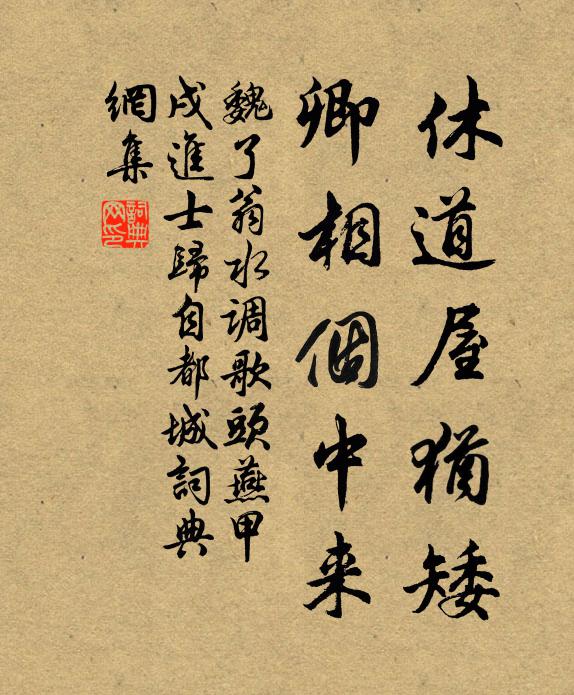 休道屋猶矮
卿相個中来
魏了翁水调歌頭燕甲
戌進士歸自都城詞典
網集
詞典网印